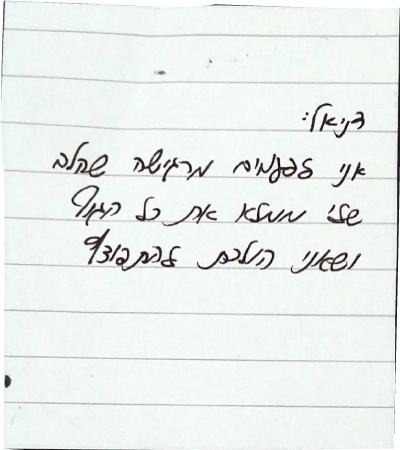 דניאל:
אני לפעמים מרגישה שהלב
שלי ממלא את כל הגוף
ושאני הולכת להתפוצץ